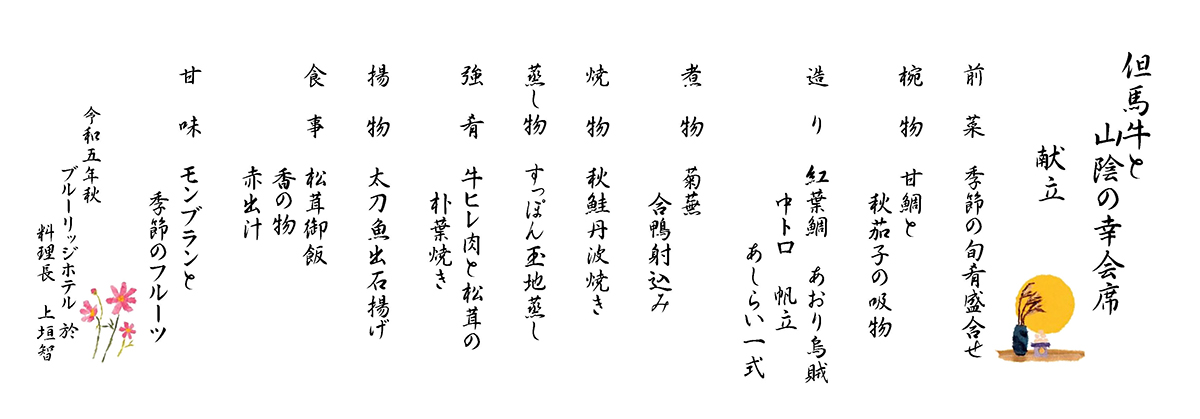 但馬牛と
山陰の幸会席
献立
前菜 季節の旬肴盛合せ
椀物 甘鯛と
秋茄子の吸物
造り 紅葉鯛 あおり烏賊
中トロ 帆立
あしらい一式
煮物 菊蕪
合鴨射込み
焼物 秋鮭丹波焼き
蒸し物 すっぽん玉地蒸し
強肴 牛ヒレ肉と松茸の
朴葉焼き
揚物 太刀魚出石揚げ
食事 松茸御飯
香の物
赤出汁
甘味 モンブランと
季節のフルーツ
令和五年秋
ブルーリッジホテル 於
料理長 上垣智